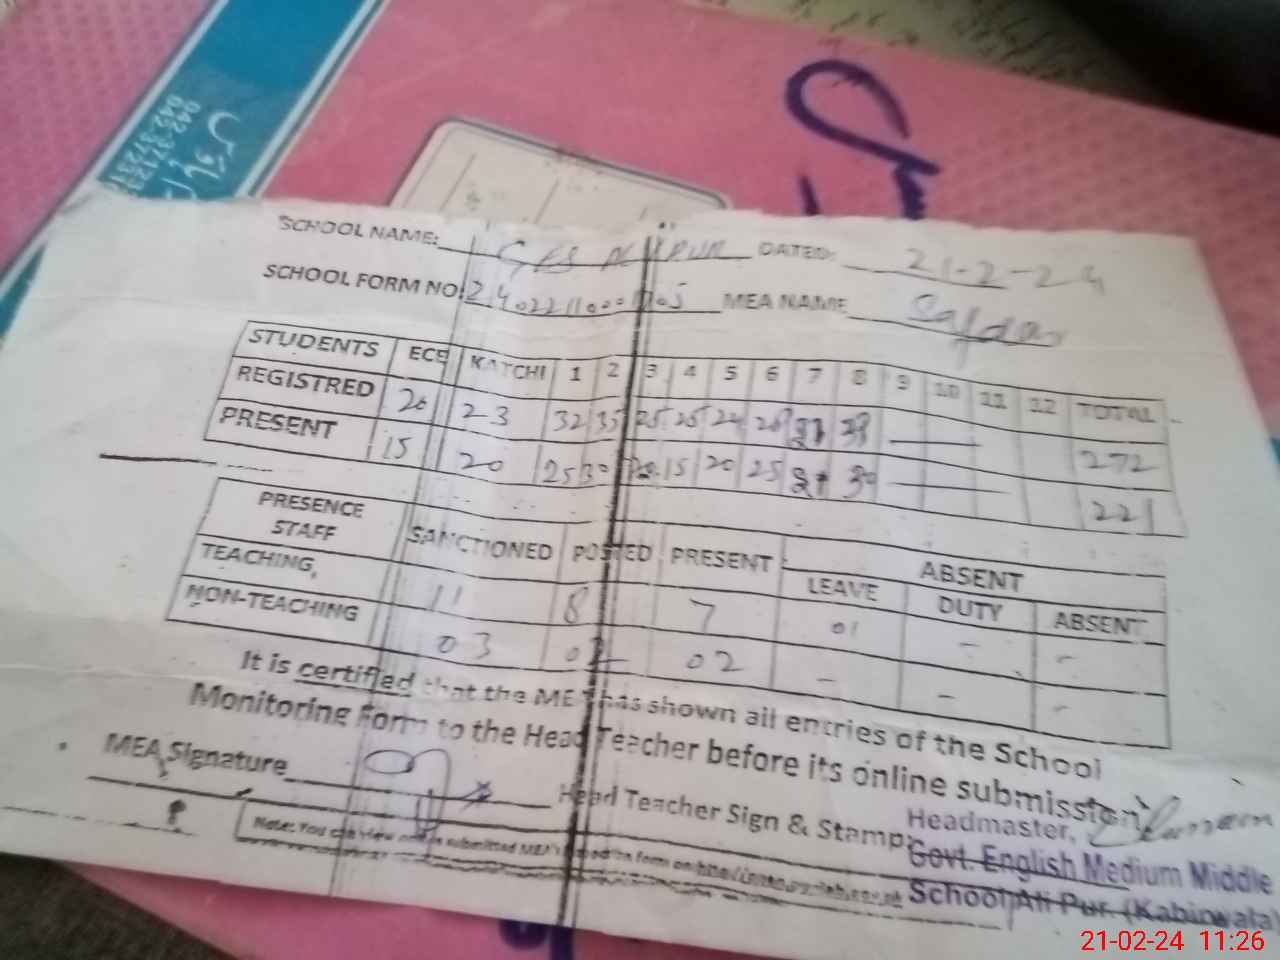 SCHOOL NAME: GES ALI PUR DATED: 21-2-24
SCHOOL FORM NO. MEA NAME
STUDENTS ECE KATCHI 1 2 3 4 5 6 7 8 9 10 11 12 TOTAL
REGISTRED 20 23 32 35 25 25 24 28 272
PRESENT 15 20 25 30 15 20 25 221
PRESENCE STAFF SANCTIONED POSTED PRESENT ABSENT
LEAVE DUTY ABSENT
TEACHING, 11 8 7 01 - -
NON-TEACHING 03 02 - - -
It is certified that the MEA has shown all entries of the School
Monitoring Form to the Head Teacher before its online submission
MEA Signature Head Teacher Sign & Stamp:
Headmaster,
Govt. English Medium Middle
School Ali Pur. (Kabirwala)
Note: You can view
21-02-24 11:26